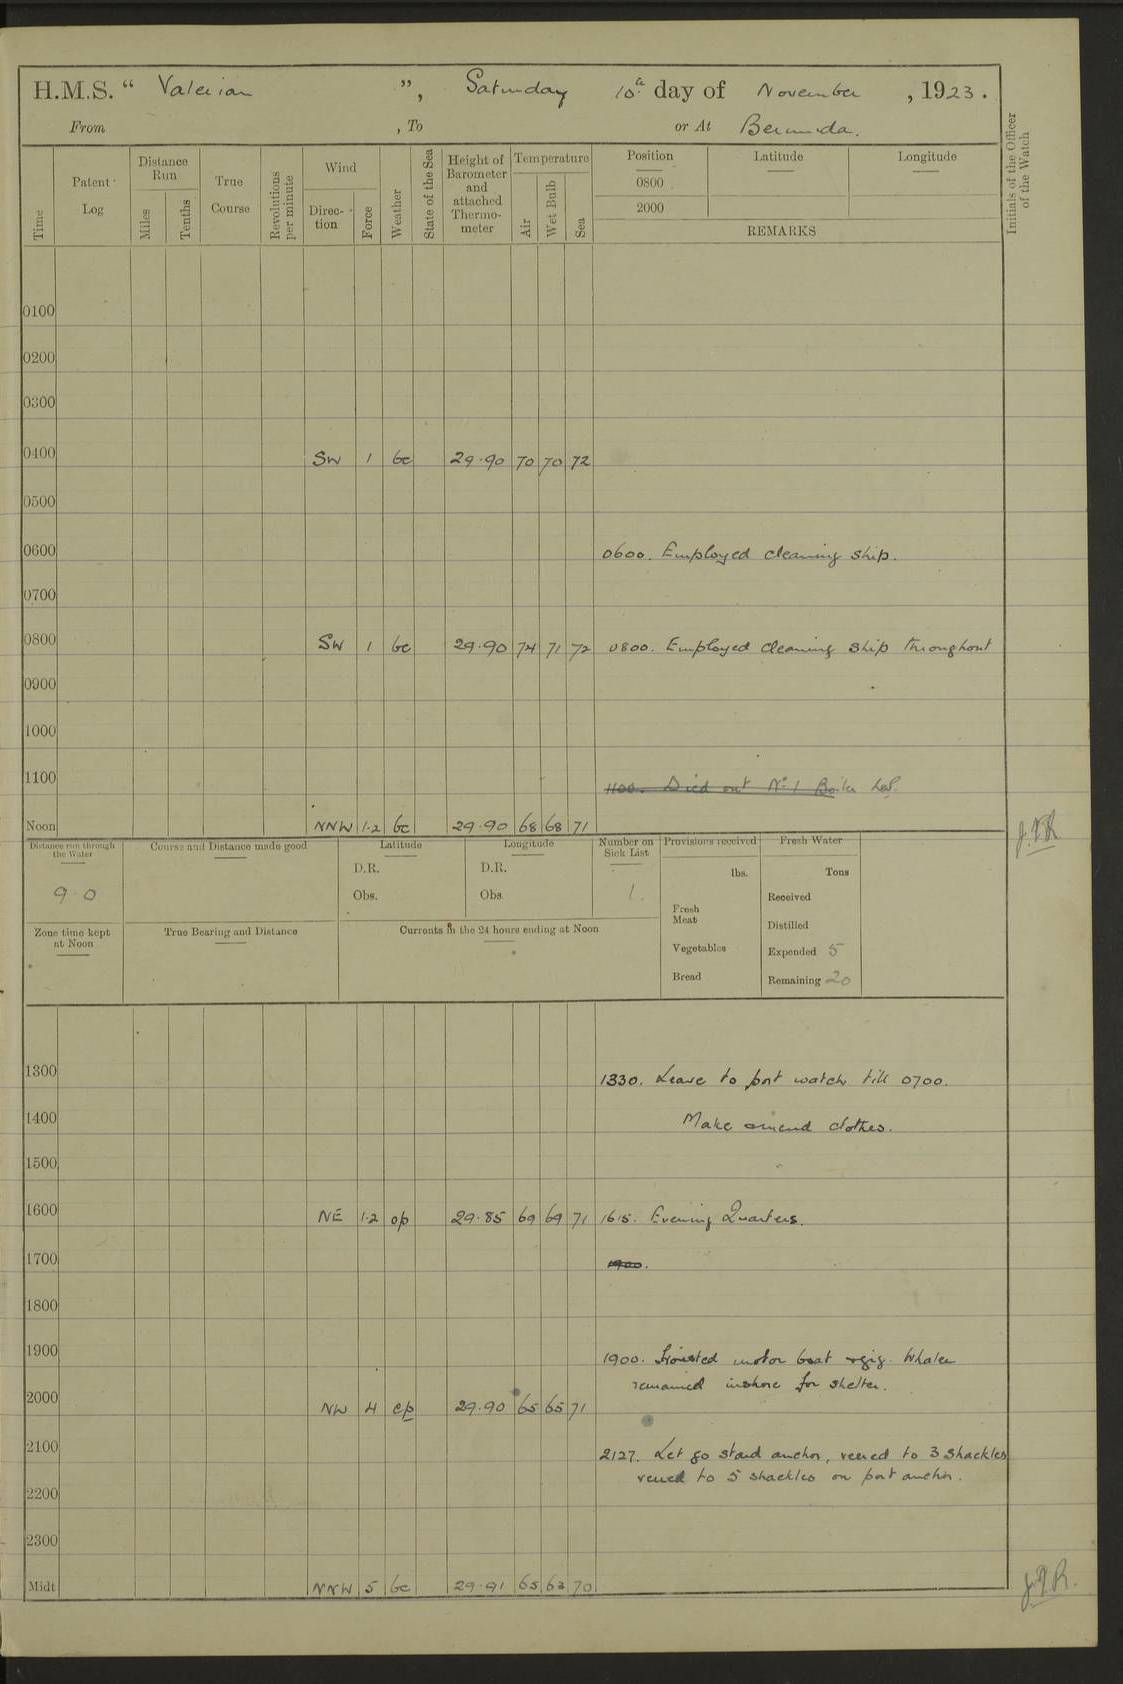 H.M.S. “ Valerian ”, Saturday 10th day of November, 1923.
From , To or At Bermuda.
Time
Patent Log
Distance Run
Miles
Tenths
True Course
Revolutions per minute
Wind
Direction
Force
Weather
State of the Sea
Height of Barometer and attached Thermometer
Temperature
Air
Wet Bulb
Sea
Position
0800
2000
Latitude
Longitude
REMARKS
Initials of the Officer of the Watch
0100
0200
0300
0400 SW 1 bc 29.90 70 70 72
0500
0600 0600. Employed cleaning ship.
0700
0800 SW 1 bc 29.90 74 71 72 0800. Employed cleaning ship throughout
0900
1000
1100 1100. Died out No 1 Boiler
Noon NNW 1-2 bc 29.90 68 68 71
Distance run through the Water
9 0
Course and Distance made good
Latitude
D.R.
Obs.
Longitude
D.R.
Obs
Number on Sick List
1.
Provisions received
lbs.
Fresh Meat
Vegetables
Bread
Fresh Water
Tons
Received
Distilled
Expended 5
Remaining 20
Zone time kept at Noon
True Bearing and Distance
Currents in the 24 hours ending at Noon
1300 1330. Leave to port watch till 0700.
1400 Make amend clothes.
1500
1600 NE 1-2 op 29.85 69 69 71 1615. Evening Quarters.
1700 1900.
1800
1900 1900. Hoisted motor boat gig. Whaler
remained inshore for shelter.
2000 NW 4 cp 29.90 65 65 71
2100 2127. Let go stard anchor, veered to 3 shackles
veered to 5 shackles on port anchor.
2200
2300
Midt NNW 5 bc 29.91 65 63 70